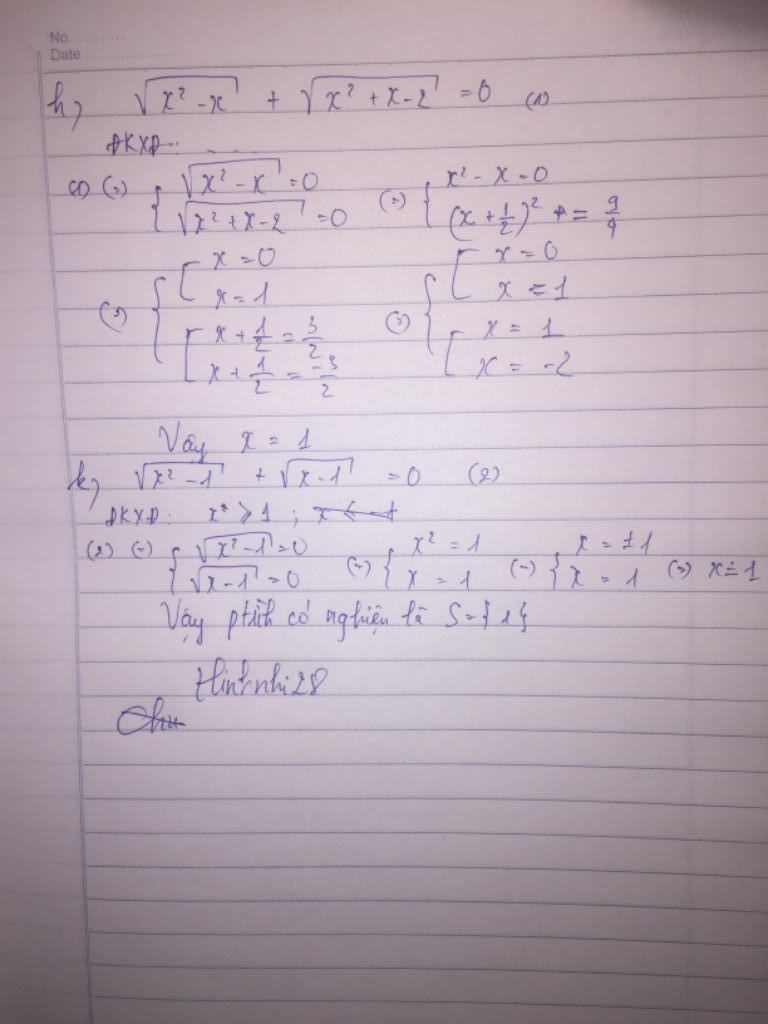 No. ..........
Date ....................
h) √(x² - x) + √(x² + x - 2) = 0 (1)
ĐKXĐ: ....
(1) (=) { √(x² - x) = 0 (=) { x² - x = 0
√(x² + x - 2) = 0 (x + 1/2)² = 9/4
(=) { [ x = 0 (=) { [ x = 0
x = 1 x = 1
[ x + 1/2 = 3/2 [ x = 1
x + 1/2 = -3/2 x = -2
Vậy x = 1
k) √(x² - 1) + √(x - 1) = 0 (2)
ĐKXĐ: x ≥ 1 ;
(2) (=) { √(x² - 1) = 0 (=) { x² = 1 (=) { x = ±1 (=) x = 1
√(x - 1) = 0 x = 1 x = 1
Vậy ptrình có nghiệm là S = {1}
Hinhnhi28